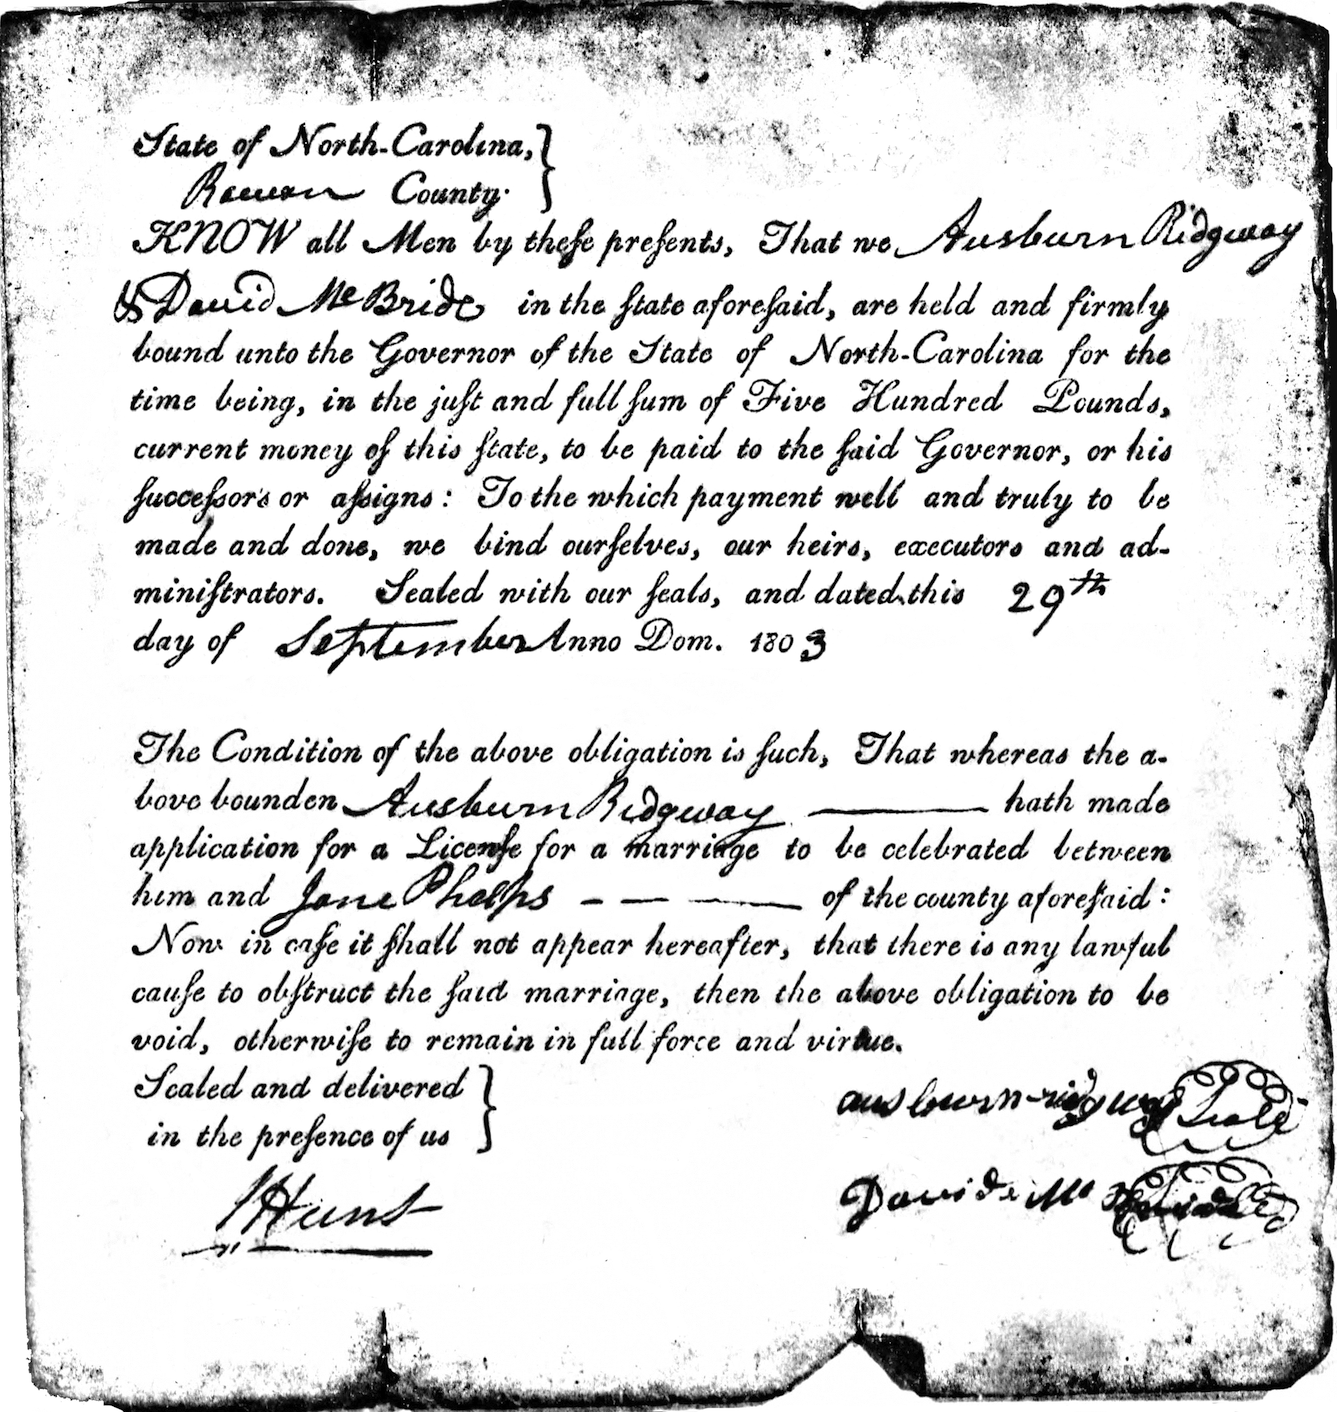 State of North-Carolina, }
Rowan County. }
KNOW all Men by theſe preſents, That we Ausburn Ridgway
& David Mc Bride in the ſtate aforeſaid, are held and firmly
bound unto the Governor of the State of North-Carolina for the
time being, in the juſt and full ſum of Five Hundred Pounds,
current money of this ſtate, to be paid to the ſaid Governor, or his
ſucceſſors or aſſigns: To the which payment well and truly to be
made and done, we bind ourſelves, our heirs, executors and ad-
miniſtrators. Sealed with our ſeals, and dated this 29th
day of September Anno Dom. 1803
The Condition of the above obligation is ſuch, That whereas the a-
bove bounden Ausburn Ridgway —— hath made
application for a Licenſe for a marriage to be celebrated between
him and Jane Phelps – — —— of the county aforeſaid:
Now in caſe it ſhall not appear hereafter, that there is any lawful
cauſe to obſtruct the ſaid marriage, then the above obligation to be
void, otherwiſe to remain in full force and virtue.
Sealed and delivered }
in the preſence of us }
ausburn ridgway Seal
JHunt
David Mc